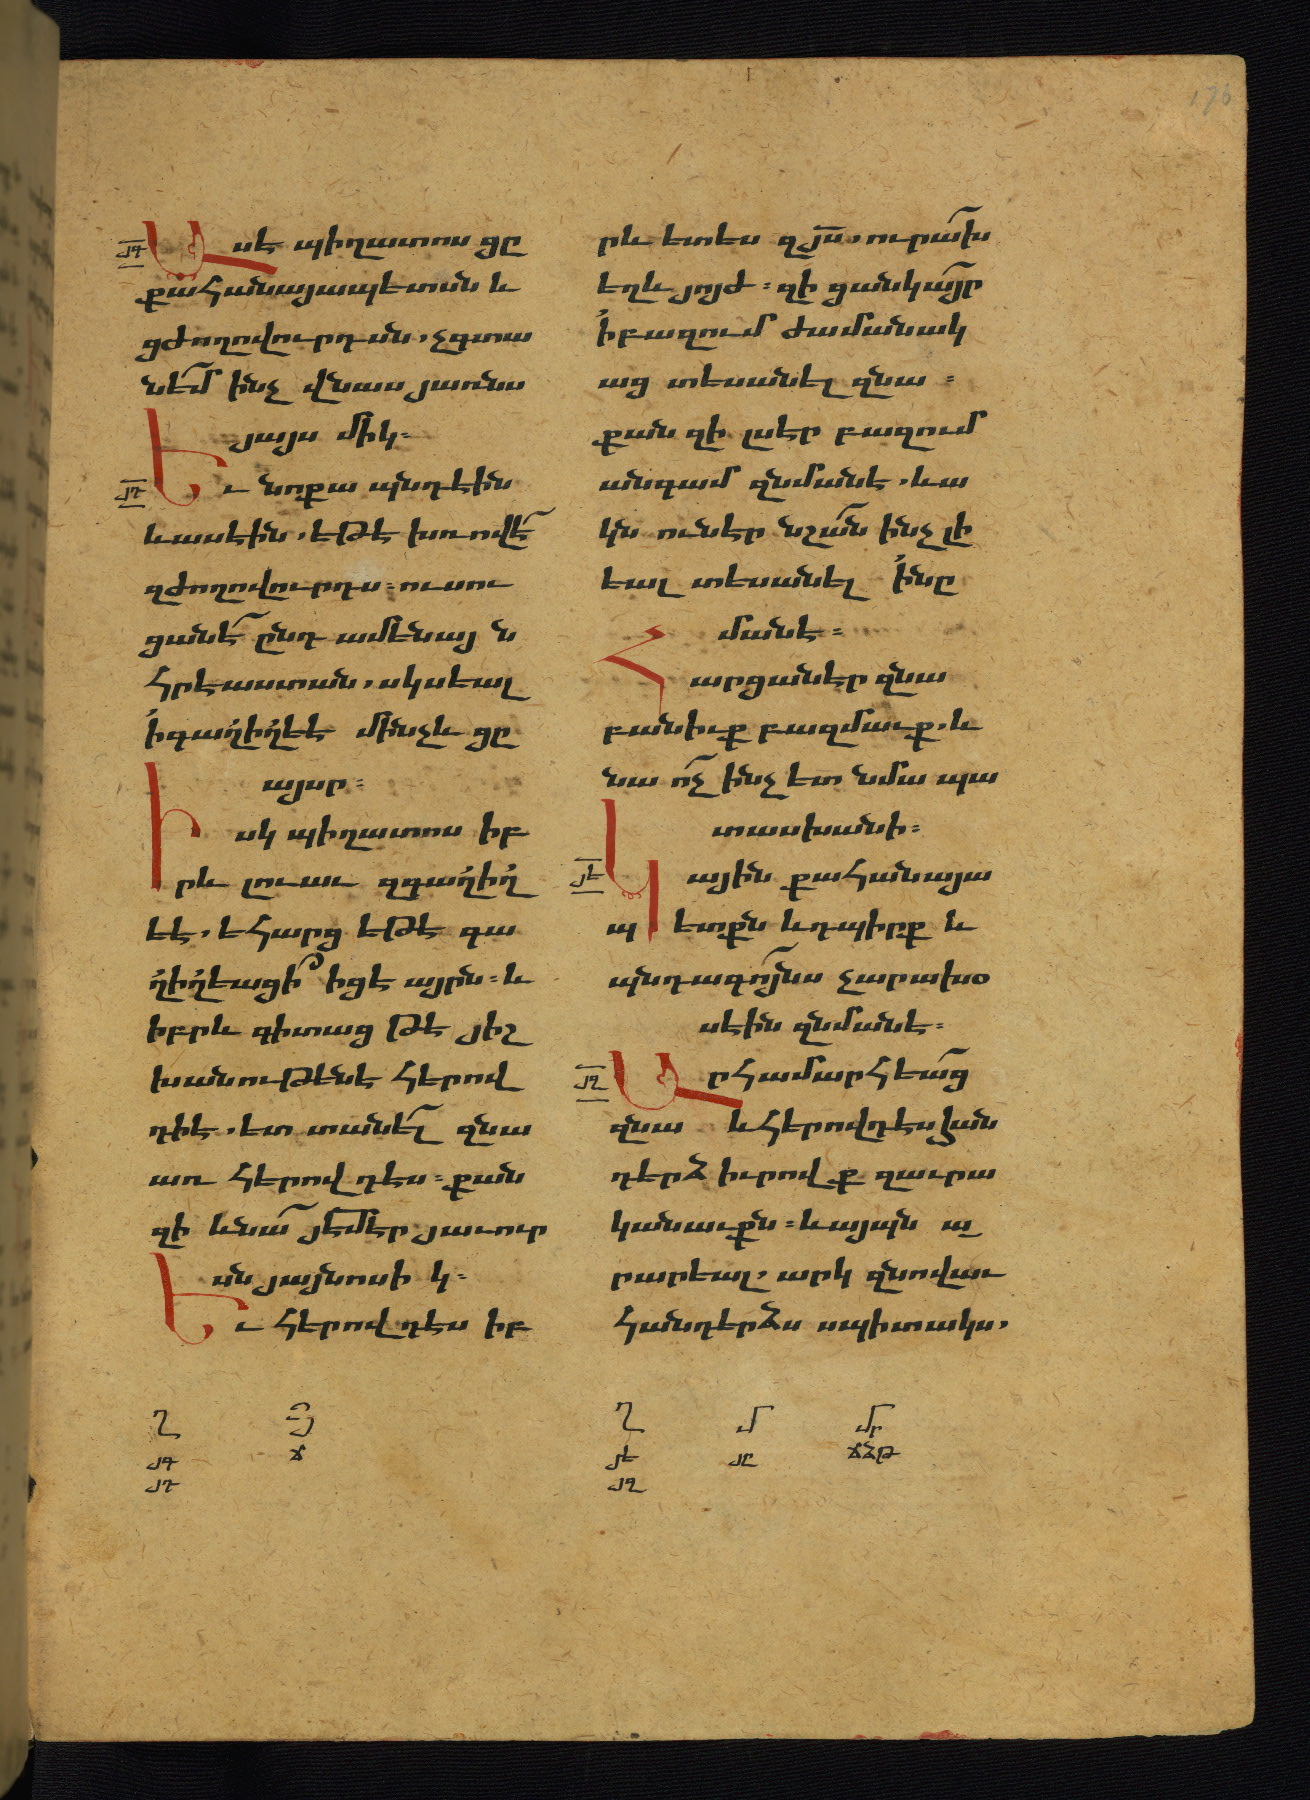 176
յգ Ասէ պիղատոս ցը
քահանայապետան և
ցժողովուրդսն, չգտա
նեմ ինչ վնաս յառնս
յայս միկ։
յդ Եւ նոքա պնդէին
և ասէին, եթէ խռովէ
զժողովուրդս։ ուսու
ցանէ ընդ ամենայ ն
հրէաստան, սկսեալ
ի գաղիղեէ մինչև ցը
այսր։
Իսկ պիղատոս իբ
րև լուաւ զգաղիղ
եէ, եհարց եթէ գա
ղիղեացի՞ իցէ այրն։ և
իբրև գիտաց թէ յիշ
խանութենէ հերով
դիէ, ետ տանել զնա
առ հերովդէս։ քան
զի և նա յեմէր յաւուր
սն յայնոսի կ։
Եւ հերովդէս իբ
րև ետես զյս, ուրախ
եղև յոյժ։ զի ցանկայր
ի բազում ժամանակ
աց տեսանել զնա։
քան զի լսէր բազում
անգամ զնմանէ, և ա
կն ունէր նշան ինչ լի
եալ տեսանել ի նը
մանէ։
Հարցանէր զնա
բանիւք բազմաւք, և
նա ոչ ինչ ետ նմա պա
տասխանի։
յե Կային քահանայա
պ ետքն և դպիրք և
պնդագոյնս չարախօ
սէին զնմանէ։
յզ Արհամարհեաց
զնա և հերովդէս հան
դերձ իւրովք զաւրա
կանաւքն։ և այպն ա
րարեալ, արկ զնովաւ
հանդերձս սպիտակս,
Ղ Յ
յգ ճ
յդ
Ղ Մ Մր
յե յը ճձթ
յզ